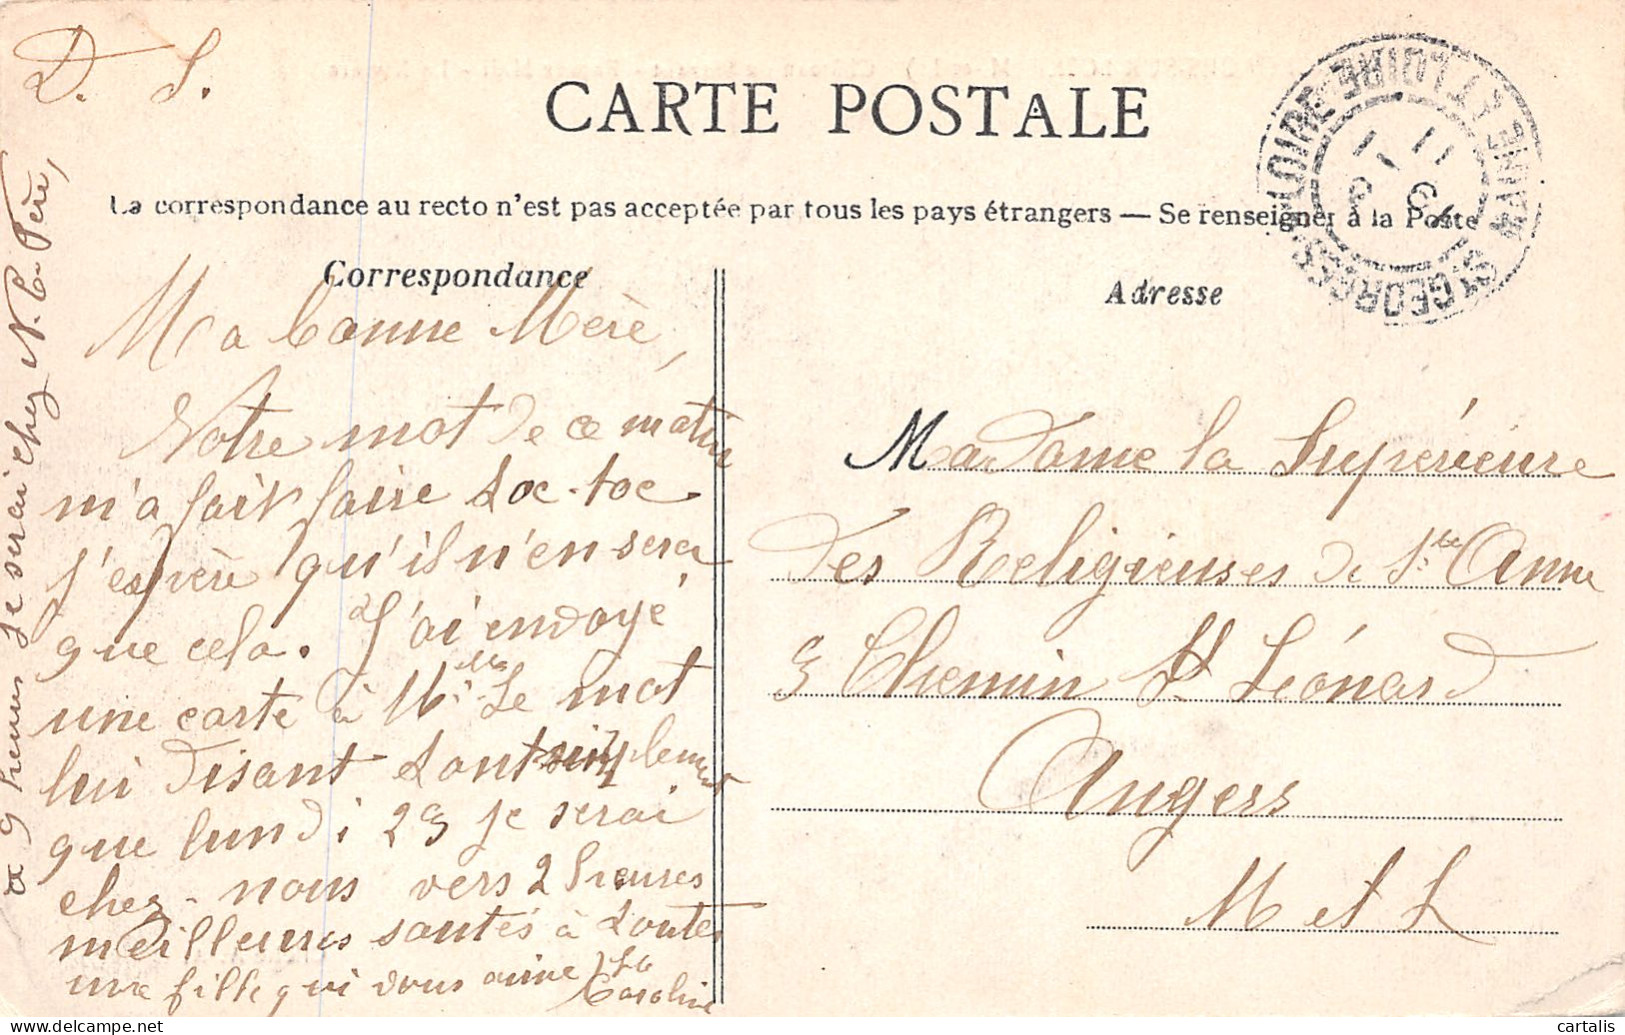 D. S.
CARTE POSTALE
La correspondance au recto n'est pas acceptée par tous les pays étrangers — Se renseigner à la Poste
ST GEORGES S. LOIRE MAINE ET LOIRE
Correspondance
Adresse
Ma bonne Mère,
Votre mot de ce matin
m'a fait faire toc-toc
j'espère qu'il n'en sera
que cela. J'ai envoyé
une carte à le mot
lui disant tout simplement
que lundi 23 je serai
chez-nous vers 2 heures
meilleures santés à toutes
une fille qui vous aime
Caroline
à 9 heures je serai chez N. C. Père,
Madame la Supérieure
des Religieuses de Ste Anne
3 Chemin St Léonard
Angers
M et L
cartalis
www.delcampe.net